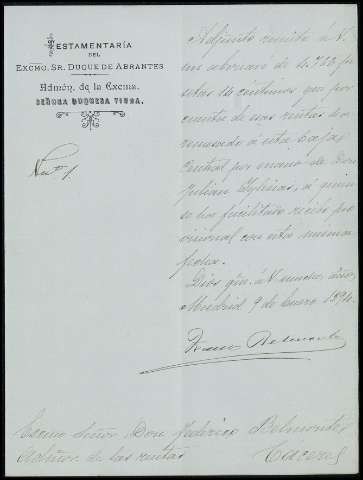 TESTAMENTARÍA
DEL
EXCMO. SR. DUQUE DE ABRANTES
Admón. de la Excma.
SEÑORA DUQUESA VIUDA.
Adjunto remito á V.
un abonaré de 4.720 pe
setas 14 céntimos que por
cuenta de sus rentas
remesado á esta Caja
Central por mano de Don
Julián Iglesias, á quien
se ha facilitado recibo pro
visional con esta misma
fecha.
Dios gue. á V. muchos años
Madrid 9 de Enero 1894.
Belmonte
Excmo Señor Don Federico Belmonte
Admor. de las rentas Cáceres